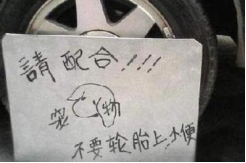 請配合!!!!
寵物
不要轮胎上小便